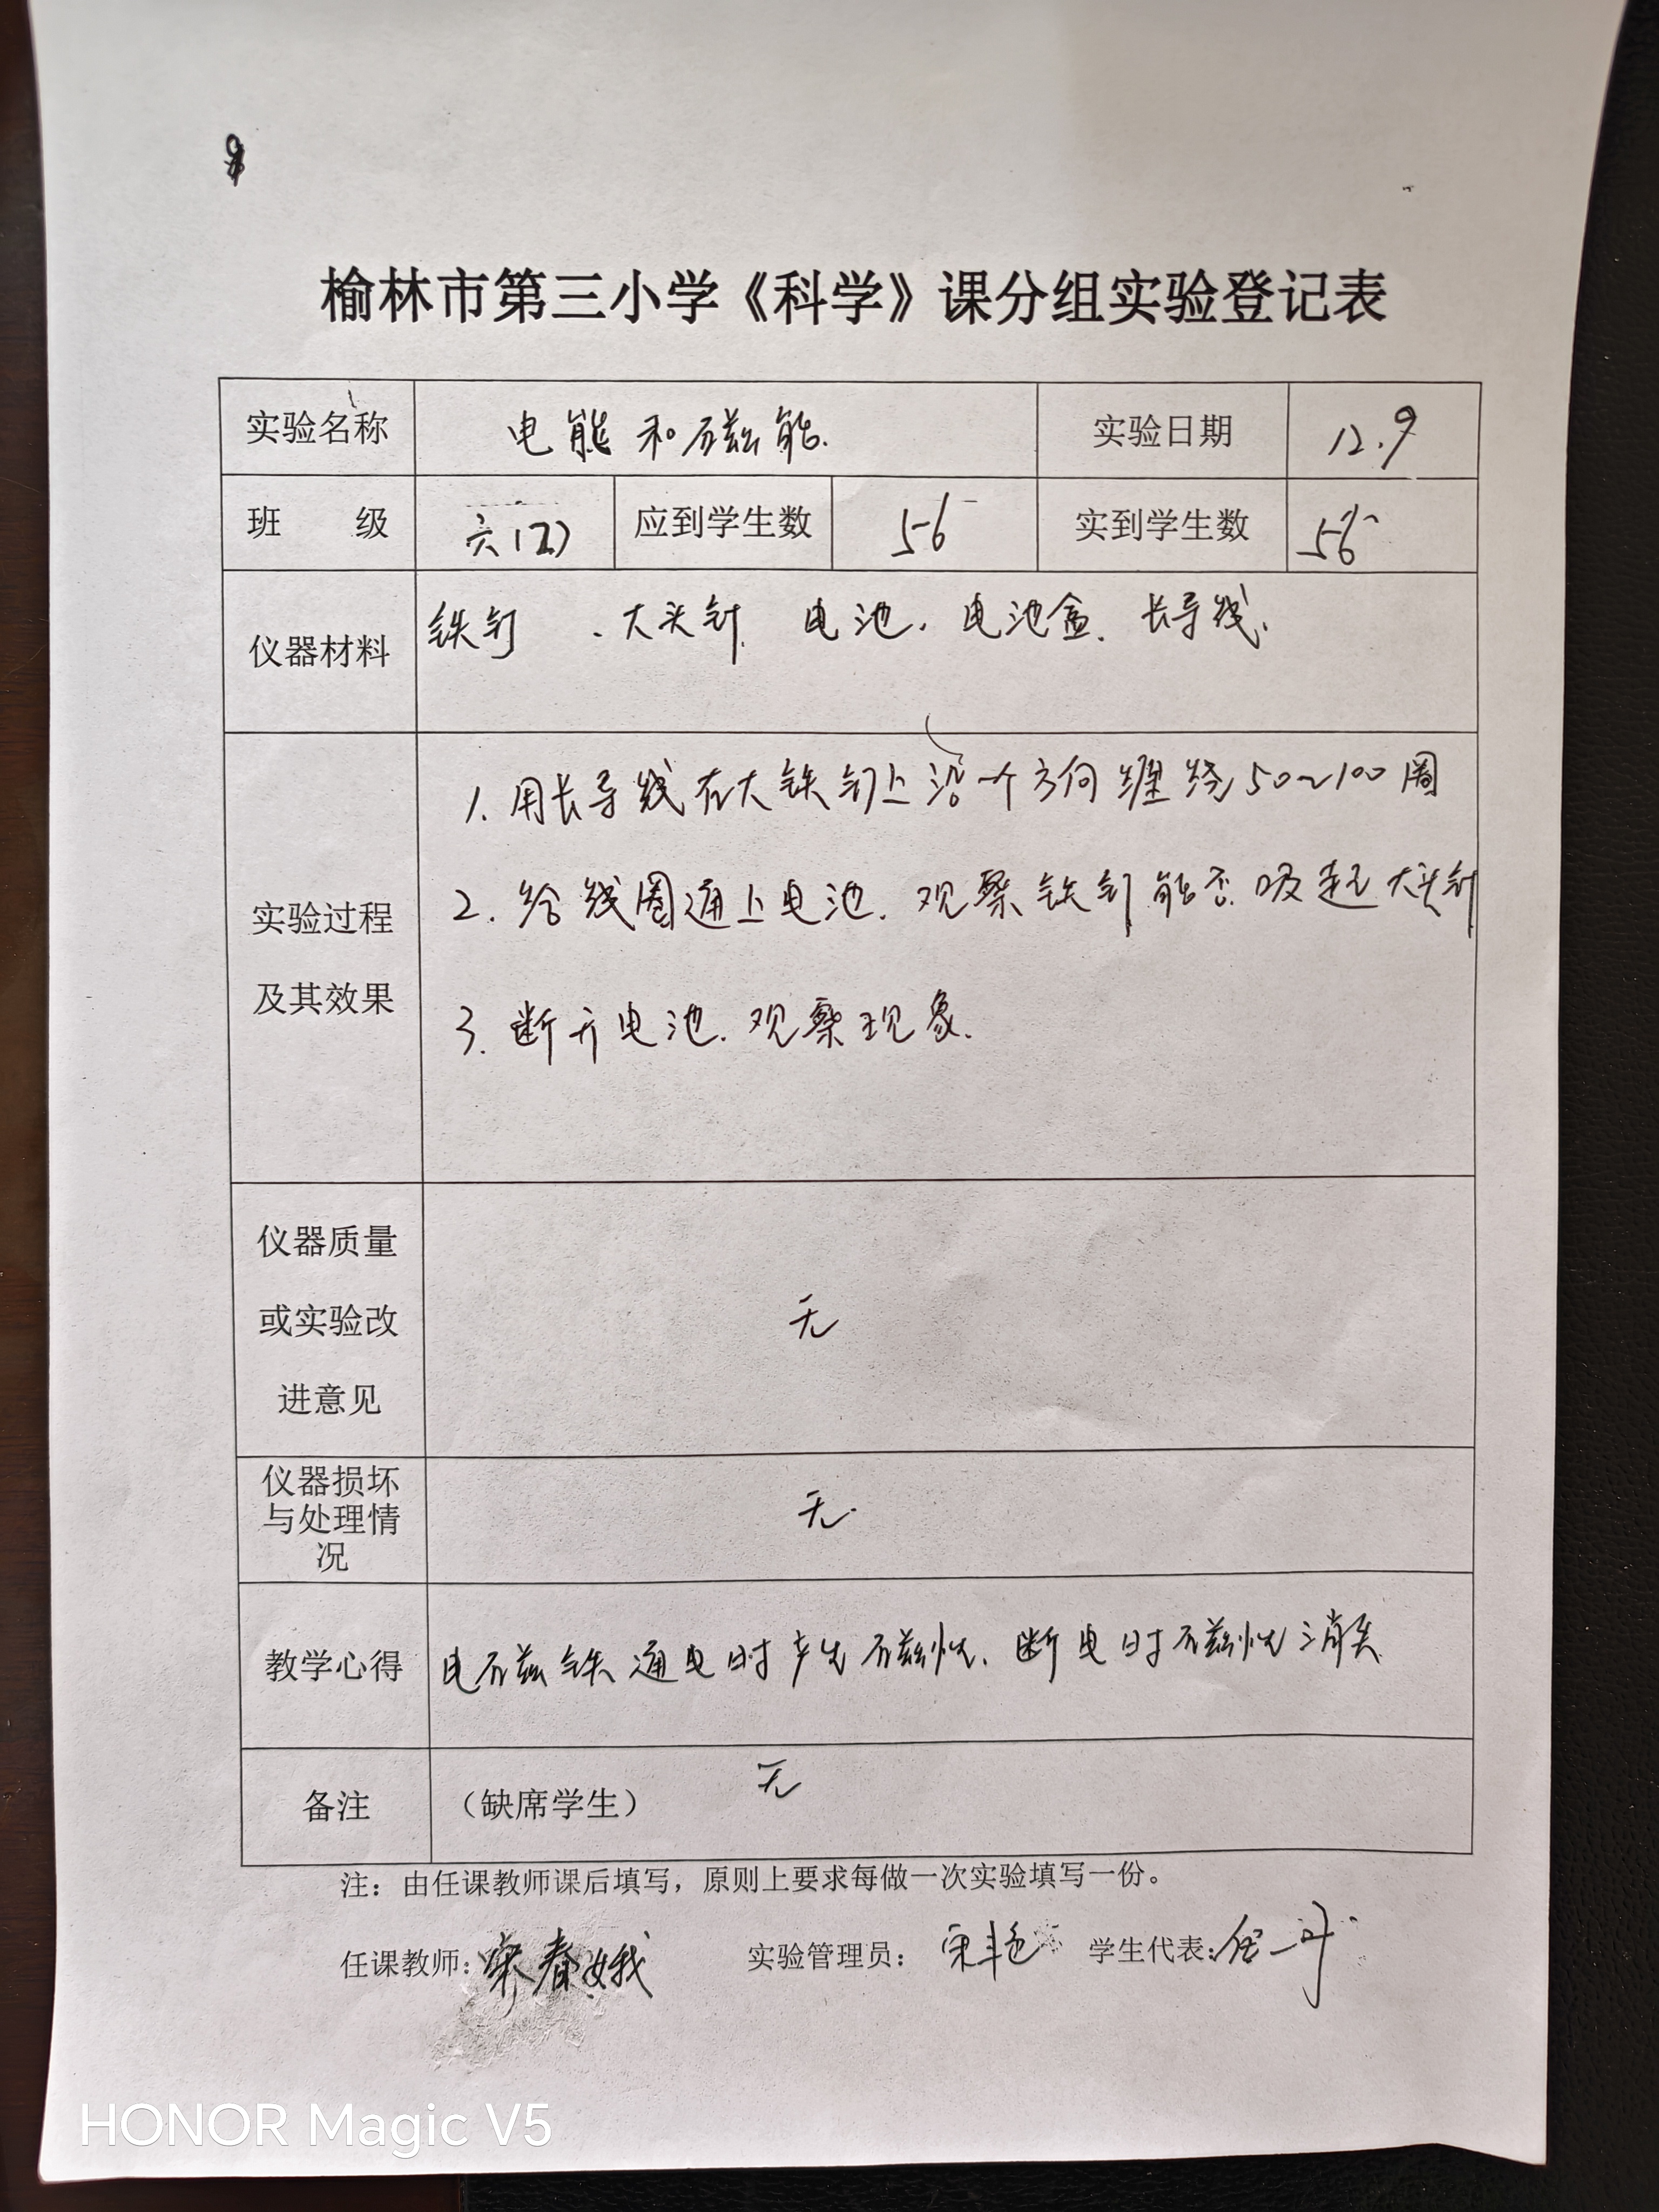 9
榆林市第三小学《科学》课分组实验登记表
实验名称 电能和磁能. 实验日期 12.9
班 级 六(2) 应到学生数 56 实到学生数 56
仪器材料 铁钉 、大头针 电池. 电池盒. 长导线.
实验过程
及其效果
1. 用长导线在大铁钉上沿一个方向缠绕50~100圈
2. 给线圈通上电池. 观察铁钉能否吸起大头针
3. 断开电池. 观察现象.
仪器质量
或实验改
进意见
无
仪器损坏
与处理情
况
无.
教学心得 电磁铁通电时产生磁性. 断电时磁性消失
备注 (缺席学生) 无
注：由任课教师课后填写，原则上要求每做一次实验填写一份。
任课教师: 宋春娥 实验管理员： 学生代表:
HONOR Magic V5